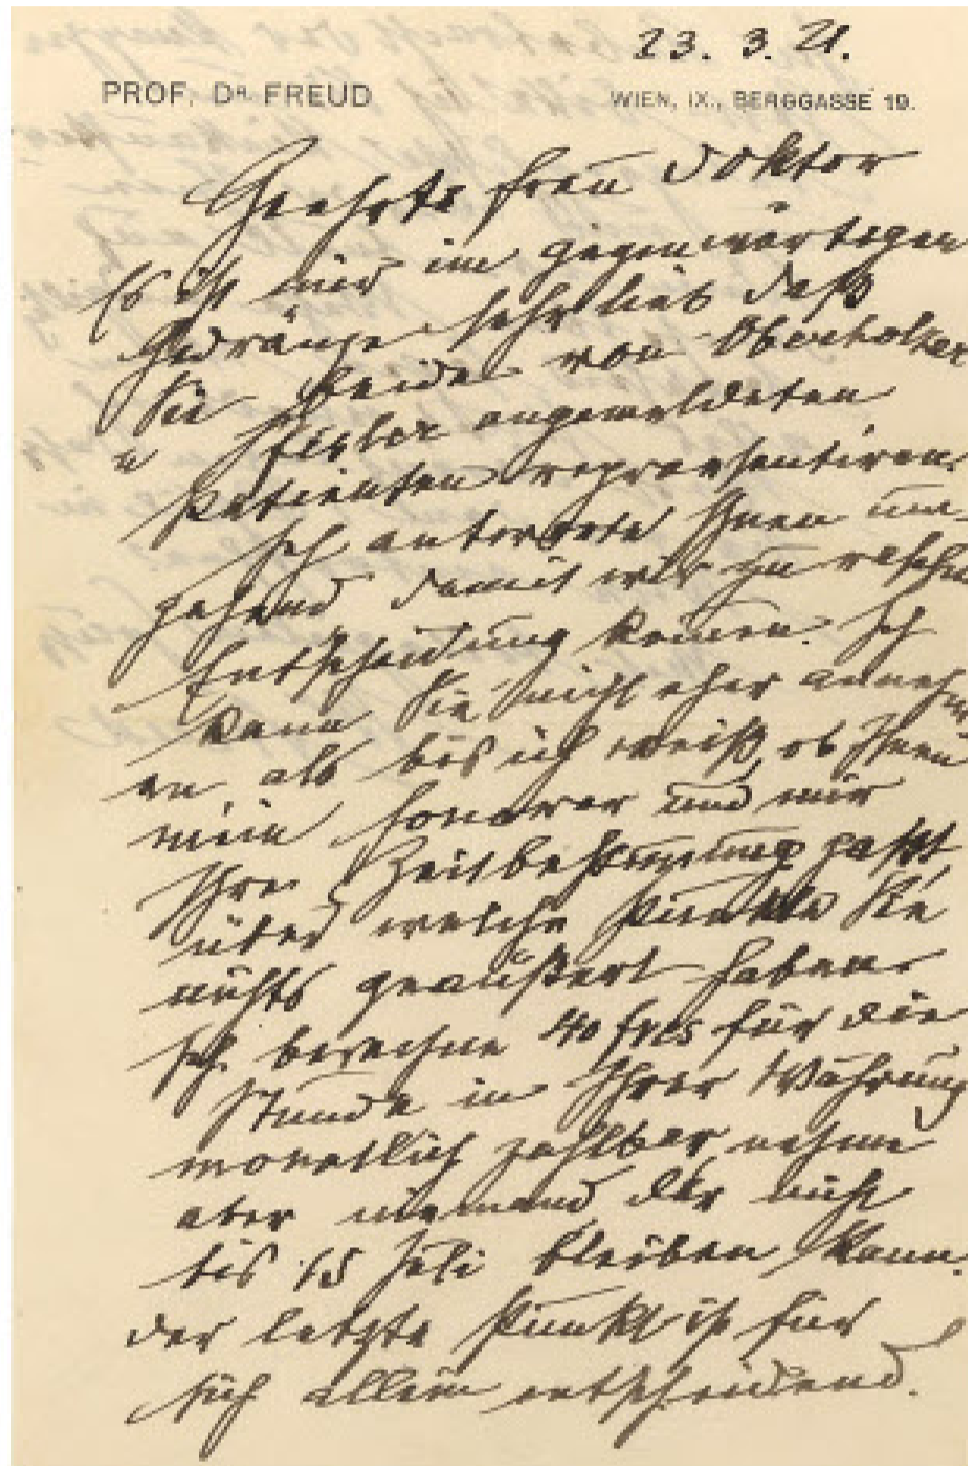 23. 3. 21.
PROF. DR. FREUD
WIEN, IX., BERGGASSE 19.
Geehrte Frau Doktor
Es ist mir im gegenwärtigen
Gedränge sehr lieb daß
Sie beide von Oberholzer
u Pfister angemeldeten
Patienten repraesentiren.
Ich antworte Ihnen um-
gehend damit wir zu rascher
Entscheidung kommen. Ich
kann Sie nicht eher annehm
en als bis ich weiß, ob Ihnen
mein Honorar und mir
Ihre Zeitbestimmung paßt,
über welche Punkte Sie
nichts geäußert haben.
Ich berechne 40 frcs für die
Stunde in Ihrer Währung
monatlich zahlbar, nehme
aber niemand der nicht
bis 15 Juli bleiben kann.
Der letzte Punkt ist für
sich allein entscheidend.